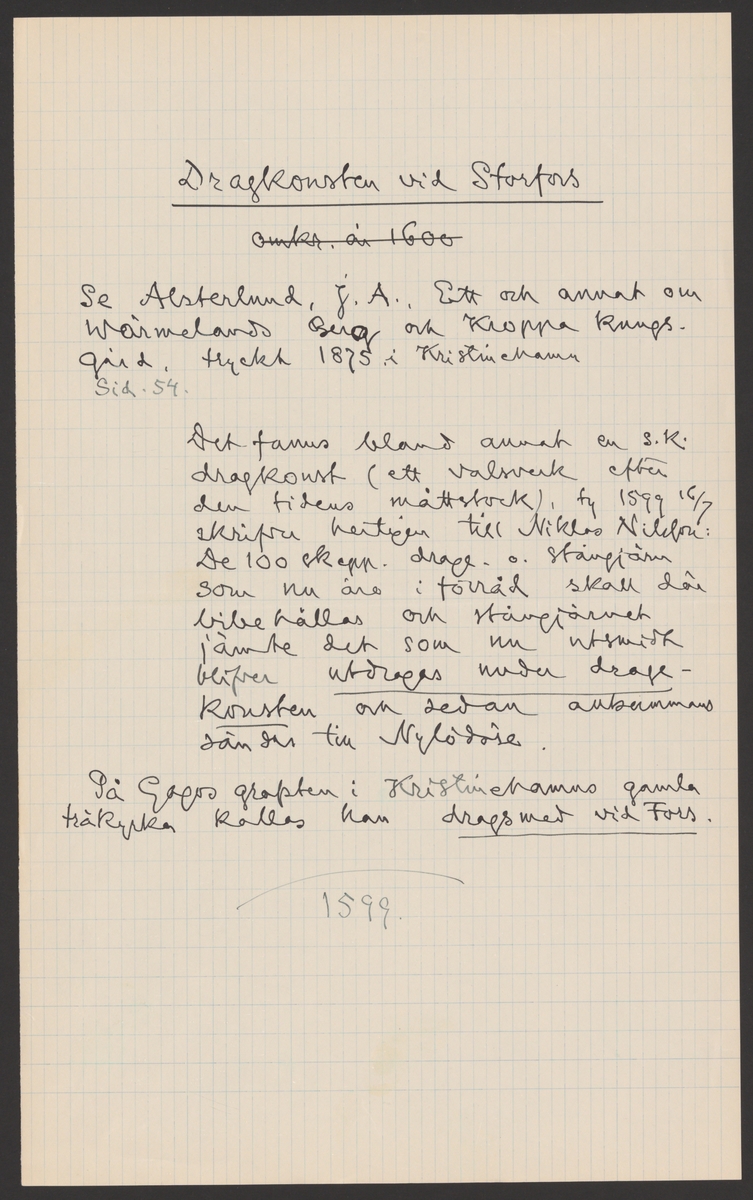 Dragkonsten vid Storfors
omkr. år 1600
Se Alsterlund, J. A., Ett och annat om
Wärmelands Berg och Kroppa Kungs-
gård, tryckt 1875 i Kristinehamn
Sid. 54.
Det fanns bland annat en s.k.
dragkonst (ett valsverk efter
den tidens måttstock), ty 1599 16/7
skrifver hertigen till Niklas Nilsson:
De 100 skepp. drage- o. stångjärn
som nu äro i förråd skall där
bibehållas och stångjärnet
jämte det som nu utsmidt
blifver utdragas under drage-
konsten och sedan
sändas till Nylödöse.
På Gagos grafsten i Kristinehamns gamla
träkyrka kallas han dragsmed vid Fors.
1599.